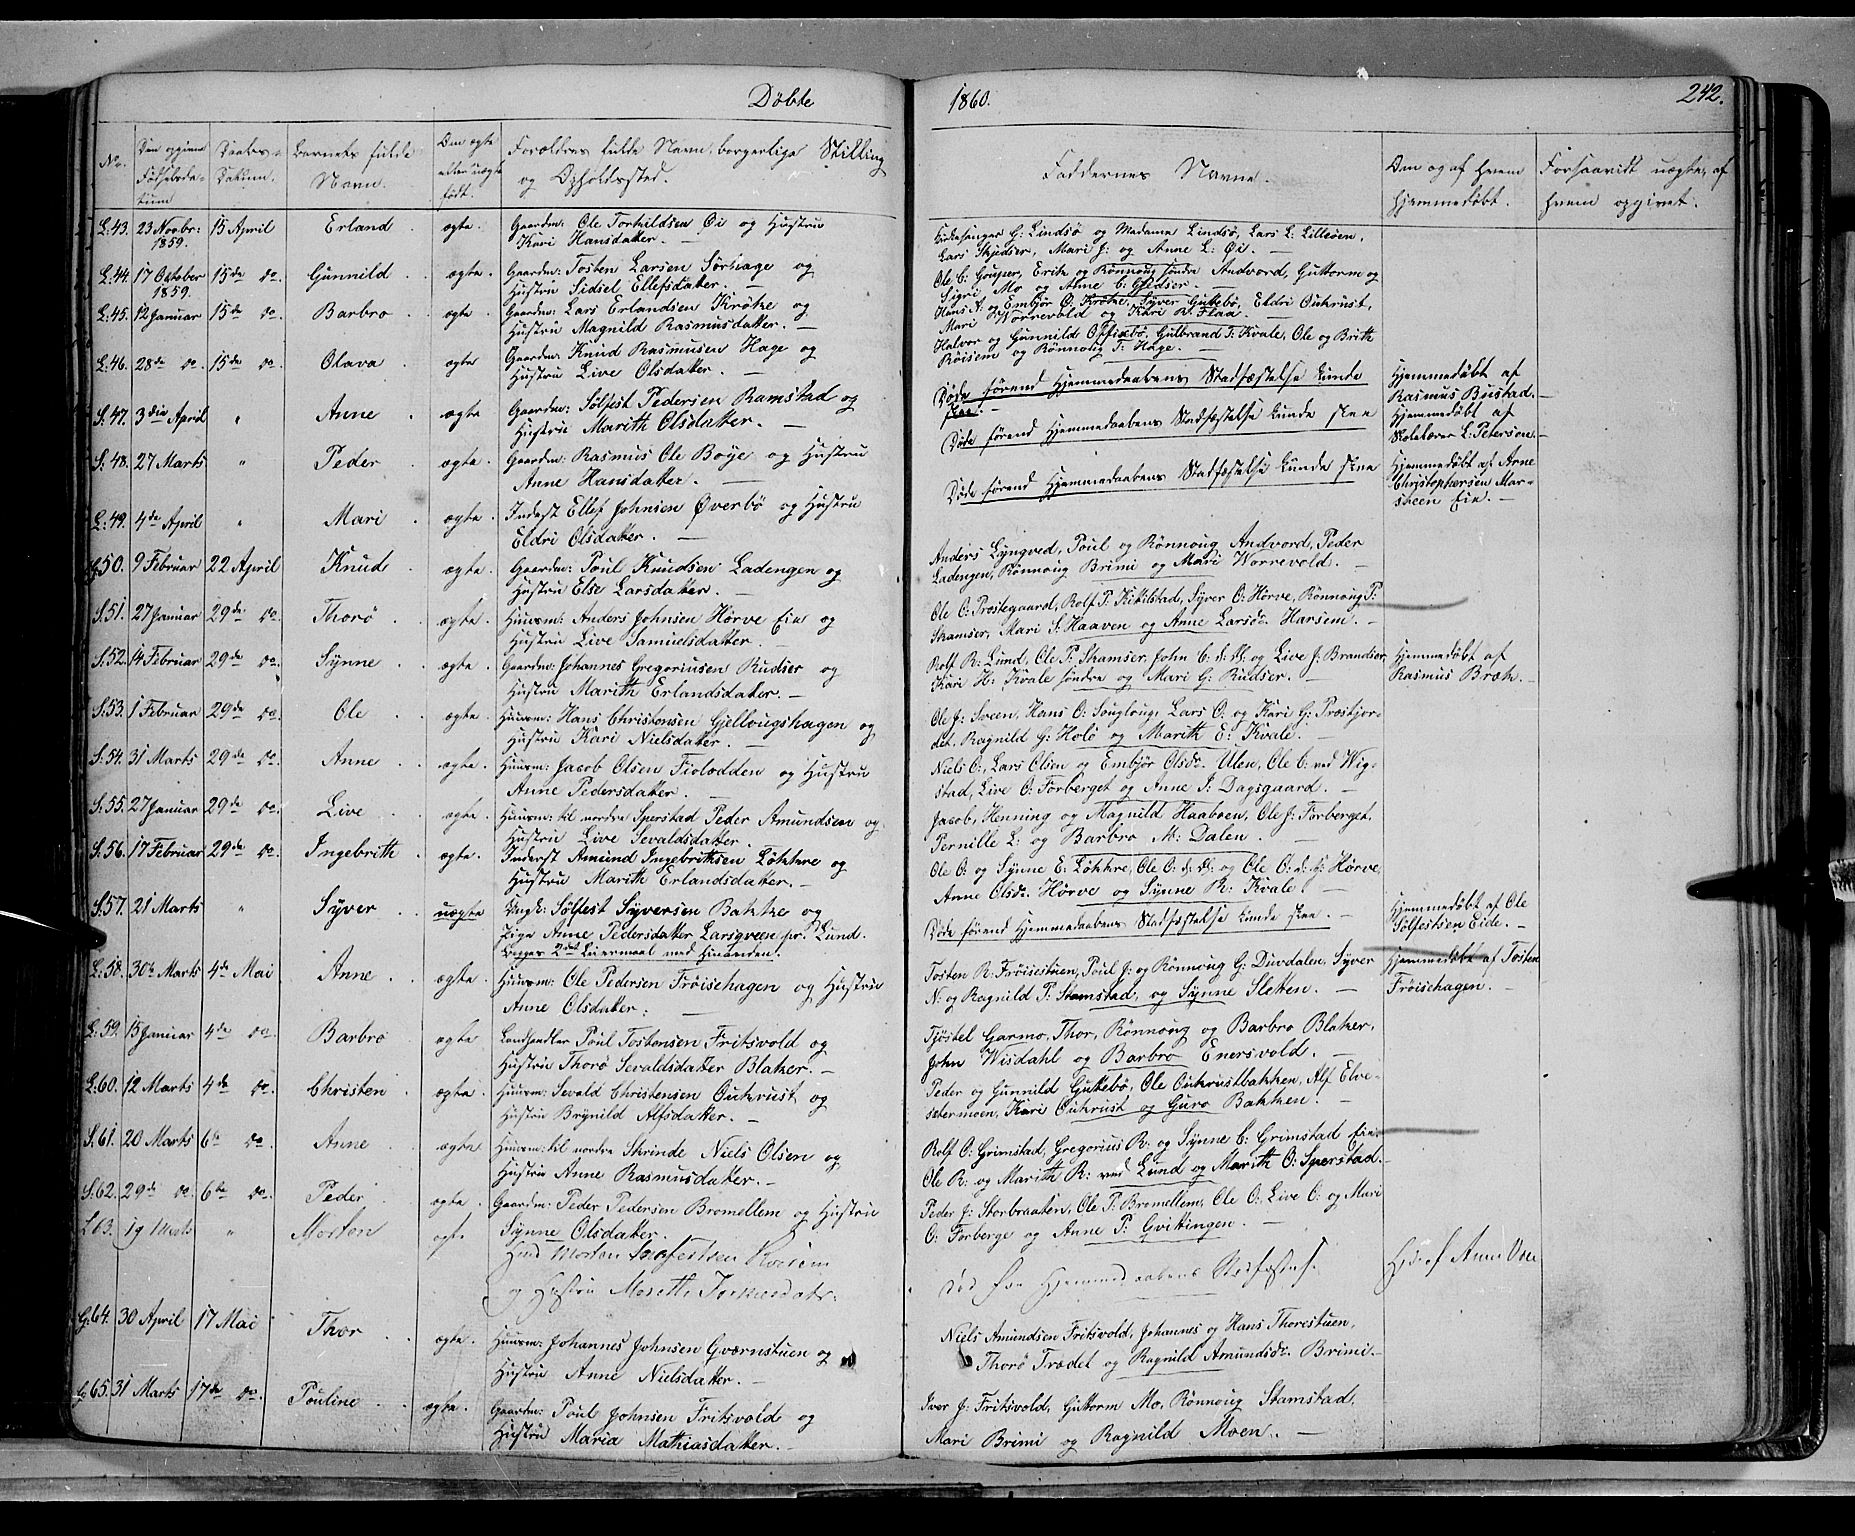 Døbte
1860.
242.
No.
Den opgivne Fødselsdatum
Daabsdatum.
Barnets fulde Navn.
Om ægte eller uægte født.
Forældres fulde Navn, borgerlige Stilling og Opholdssted.
Faddernes Navne.
Om og af hvem hjemmedøbt.
Forsaavidt uægte, af hvem opgivet.
L:43. 23 Novbr: 1859. 15 April Erland ægte. Gaardm: Ole Torkildsen Øi og Hustru
Kari Hansdatter. —
Kirkesanger G: Lindsø og Madame Lindsø, Lars L: Lilleøen,
Lars Skjedser, Mari J: og Anne L: Øi. —
L:44. 17 October 1859. 15de do. Gunnild ægte. Gaardm: Tosten Larsen Sørhage og
Hustru Sidsel Ellefsdatter. —
Ole C. Erik og Rønnoug søndre Andvord, Guttorm og
Sigri Mo og Anne C: Gjedser. —
L:45. 12 Januar 15de do. Barbro ægte. Gaardm: Lars Erlandsen Krøke og
Hustru Magnild Rasmusdatter. —
Hans A: og Embjør Ø: Krøke, Syver Gukebø, Eldri Oukrust,
Mari Norrevold og Kari R. Flaa. —
L:46. 28de do. 15de do. Olava ægte Gaardm: Knud Rasmusen Hage og
Hustru Live Olsdatter. —
Halvor og Gunnild Offixebø, Gulbrand T: Kvale, Ole og Brith
Røisem og Rønnoug T: Hage. —
S:47. 3die April " Anne ægte Gaardm: Sølfest Pedersen Ramstad og
Hustru Marith Olsdatter. —
Døde førend Hjemmedaabens Stadfæstelse kunde
skee. —
Hjemmedøbt af
Rasmus Bustad. —
S:48. 27 Marts " Peder ægte. Gaardm: Rasmus Ole Bøye og Hustru
Anne Hansdatter. —
Døde førend Hjemmedaabens Stadfæstelse kunde skee
Hjemmedøbt af
Skolelærer L. Petersen. —
L:49. 4de April " Mari ægte. Inderst Ellef Johnsen Øverbø og Hustru
Eldri Olsdatter. —
Døde førend Hjemmedaabens Stadfæstelse kunde skee
Hjemmedøbt af Arne
Christophersen Marsteen Eie. —
G:50. 9 Februar 22 April Knud ægte. Gaardm: Poul Knudsen Ladengen og
Hustru Else Larsdatter. —
Anders Lyngved, Poul og Rønnoug Andvord, Peder
Ladengen, Rønnoug Brimi og Mari Norrevold. —
S:51. 27 Januar 29de do. Thorø ægte. Huusm: Anders Johnsen Hørve Eie og
Hustru Live Samuelsdatter. —
Ole O: Prestegaard, Rolf P: Kikilstad, Syver O: Hørve, Rønnoug P:
Skamser, Mari S: Haaven og Anne Larsdr. Harsem. —
S:52. 14 Februar 29de do. Synne ægte. Gaardm: Johannes Gregoriusen Rudser og
Hustru Marith Erlandsdatter. —
Rolf R: Lund, Ole P: Skamser, John C: d: Æ: og Live J: Brandser,
Kari H: Kvale søndre og Mari G: Rudser. —
Hjemmedøbt af
Rasmus Bræk. —
S:53. 1 Februar 29de do. Ole ægte. Huusm: Hans Christensen Gjellougshagen og
Hustru Kari Nielsdatter. —
Ole J: Sveen, Hans O: Sougloug, Lars O. og Kari G: Prestjordet, Ragnild G: Holø og Marith E: Kvale. —
S:54. 31 Marts 29de do. Anne ægte. Huusm: Jacob Olsen Fiolodden og Hustru
Anne Pedersdatter. —
Niels O:, Lars Olsen og Embjør Olsdr. Ulen, Ole C: ved Wigstad, Live O: Forberget og Anne I: Dagsgaard. —
S:55. 27 Januar 29de do. Live ægte. Huusm: til nordre Sperstad Peder Amundsen og
Hustru Live Sevaldsdatter. —
Jacob, Henning og Magnild Haaboen, Ole J: Forberget,
Pernille L: og Barbro M: Dalen. —
S:56. 17 Februar 29de do. Ingebrith ægte. Inderst Amund Ingebrithsen Løkkre og
Hustru Marith Erlandsdatter. —
Ole O: og Synne E: Løkkre, Ole O: d: Æ: og Ole O: d: y: Hørve,
Anne Olsdr. Hørve og Synne R: Kvale. —
S:57. 21 Marts " Syver uægte Ungk: Sølfest Syversen Bakke og
Pige Anne Pedersdatter Larsgveen pr: Lund.
Begges 2det Leiermaal med hinanden.
Døde førend Hjemmedaabens Stadfæstelse kunde skee. —
Hjemmedøbt af Ole
Sølfestsen Eide. —
L:58. 30te Marts 4de Mai Anne ægte. Huusm: Ole Pedersen Frøisehagen og Hustru
Anne Olsdatter. —
Tosten R: Frøisestuen, Poul J: og Rønnoug G: Duvdalen, Syver
N: og Ragnild P: Stamstad, og Synne Sletten. —
Hjemmedøbte af Tosten
Frøisehagen. —
L:59. 15 Januar 4de do. Barbro ægte Landhandler Poul Tostensen Fritsvold og
Hustru Thorø Sevaldsdatter Blaker. —
Tjøstel Garmo, Thor, Rønnoug og Barbro Blaker,
John Wisdahl og Barbro Enersvold. —
L:60. 12 Marts 4de do. Christen ægte. Huusm: Sevald Christensen Oukrust og
Hustru Brynild Alfsdatter. —
Peder og Gunnild Gukebø, Ole Oukrustbakken, Alf Elvesætermoen, Kari Oukrust og Guro Bakken. —
S:61. 20 Marts 6te do Anne ægte Huusm: til nordre Skrinde Niels Olsen og
Hustru Anne Rasmusdatter. —
Rolf O: Grimstad, Gregorius R: og Synne C: Grimstad Eie.
Ole R: og Marith R: ved Lund og Marith O: Sperstad. —
S:62. 29de do. 6te do. Peder ægte Gaardm: Peder Pedersen Bromellem og Hustru
Synne Olsdatter. —
Peder J: Storbraaten, Ole P: Bromellem, Ole O:, Live O: og Mari
O: Forberge og Anne P: Gvittingen. —
L63. 19 Marts " Morten ægte Huusm Morten Røisem
og Hustru Marith
Død før Hjemmedaabens Stadfæstelse.
Hjd: af Anne
G:64. 30 April 17 Mai Thor ægte Huusm: Johannes Johnsen Gværnstuen og
Hustru Anne Nielsdatter. —
Niels Amundsen Fritsvold, Johannes og Hans Thorestuen,
Thorø Trædet og Ragnild Amundsdr. Brimi. —
G:65. 31 Marts 17de do. Pouline ægte. Gaardm: Poul Johnsen Fritsvold og
Hustru Maria Mathiasdatter. —
Iver J: Fritsvold, Guttorm Mo, Rønnoug Stamstad,
Mari Brimi og Ragnild Moen. —